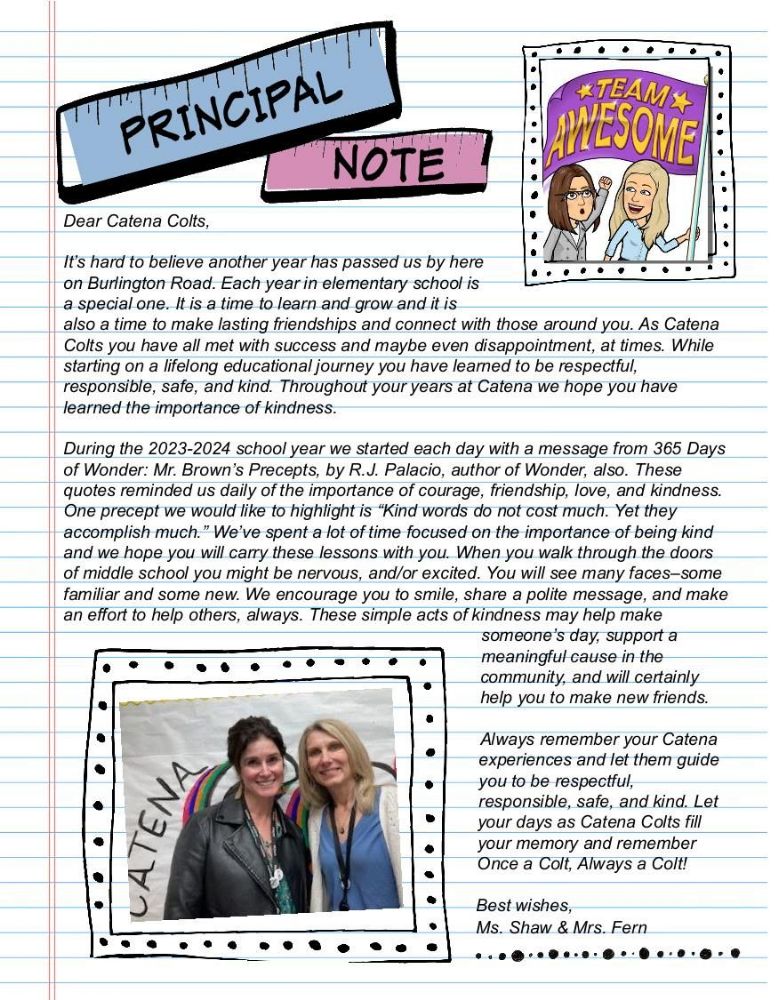 PRINCIPAL
NOTE
TEAM
AWESOME
Dear Catena Colts,
It's hard to believe another year has passed us by here
on Burlington Road. Each year in elementary school is
a special one. It is a time to learn and grow and it is
also a time to make lasting friendships and connect with those around you. As Catena
Colts you have all met with success and maybe even disappointment, at times. While
starting on a lifelong educational journey you have learned to be respectful,
responsible, safe, and kind. Throughout your years at Catena we hope you have
learned the importance of kindness.
During the 2023-2024 school year we started each day with a message from 365 Days
of Wonder: Mr. Brown's Precepts, by R.J. Palacio, author of Wonder, also. These
quotes reminded us daily of the importance of courage, friendship, love, and kindness.
One precept we would like to highlight is “Kind words do not cost much. Yet they
accomplish much.” We've spent a lot of time focused on the importance of being kind
and we hope you will carry these lessons with you. When you walk through the doors
of middle school you might be nervous, and/or excited. You will see many faces–some
familiar and some new. We encourage you to smile, share a polite message, and make
an effort to help others, always. These simple acts of kindness may help make
someone's day, support a
meaningful cause in the
community, and will certainly
help you to make new friends.
Always remember your Catena
experiences and let them guide
you to be respectful,
responsible, safe, and kind. Let
your days as Catena Colts fill
your memory and remember
Once a Colt, Always a Colt!
Best wishes,
Ms. Shaw & Mrs. Fern
CATENA